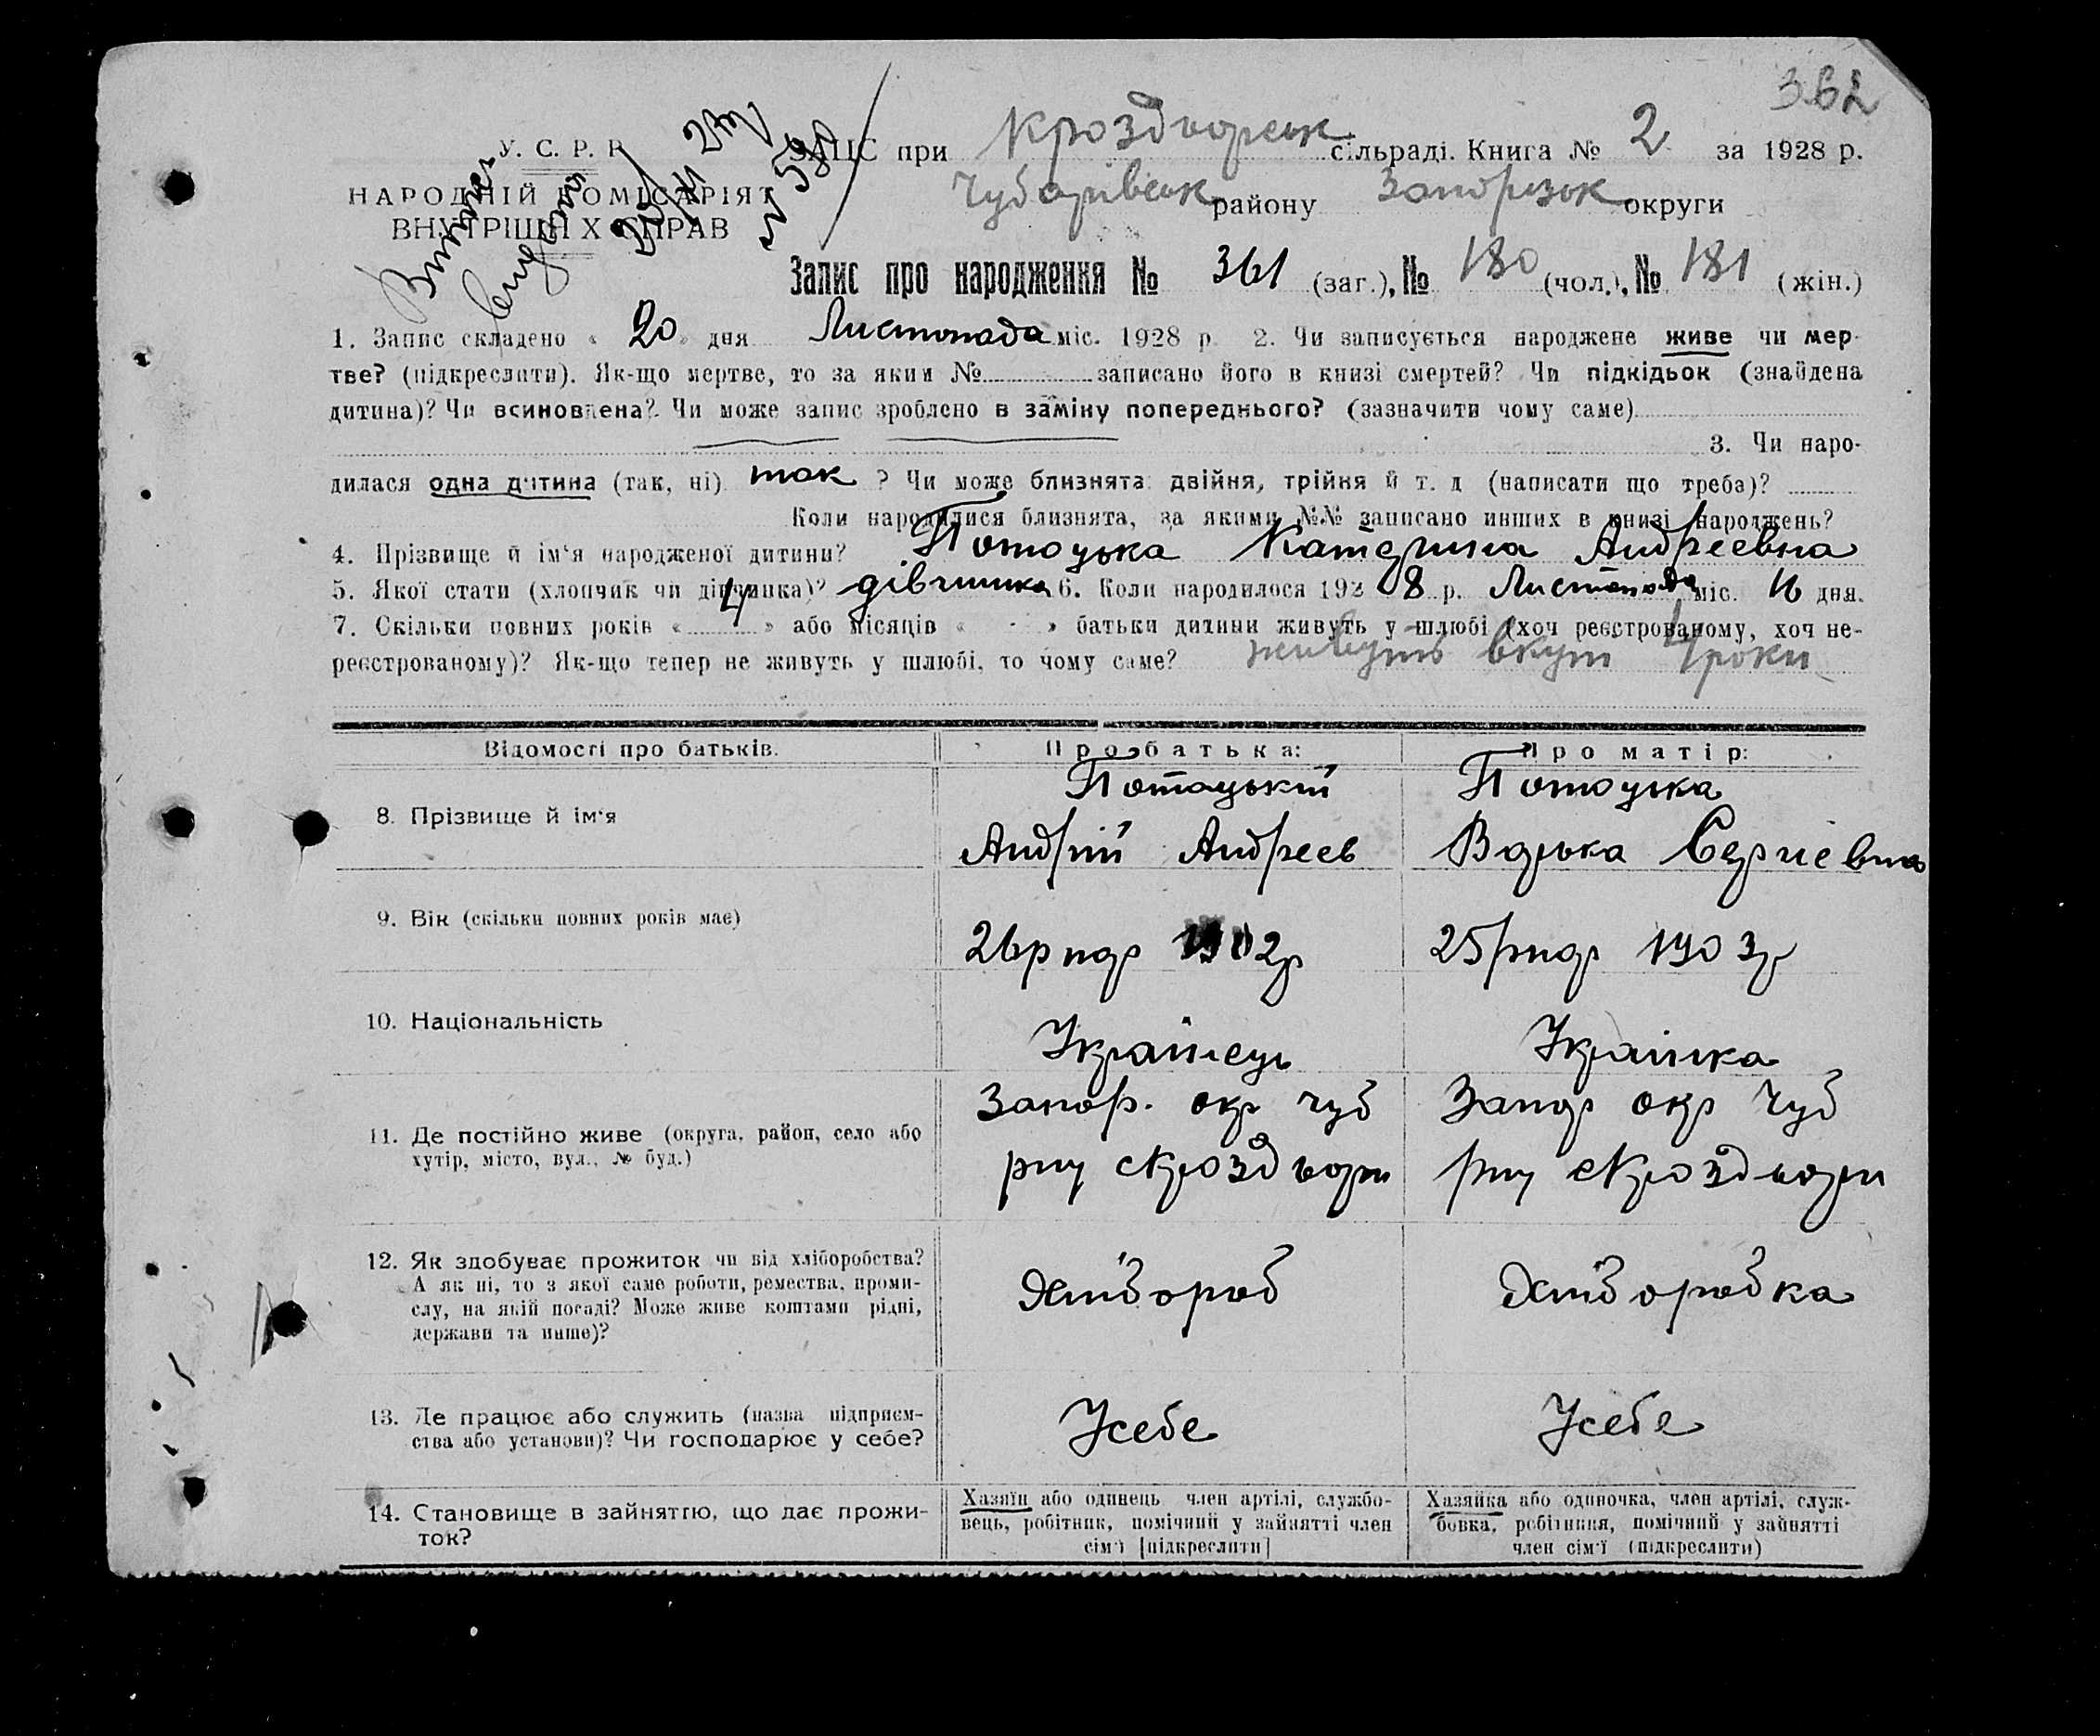 362
У. С. Р. Р.
НАРОДНІЙ КОМІСАРІЯТ
ВНУТРІШНІХ СПРАВ
ЗАПС при Кроздворськ сільраді. Книга № 2 за 1928 р.
Чубарівськ району Запорізьк округи
Запис про народження № 361 (заг.), № 180 (чол.), № 181 (жін.)
1. Запис складено « 20 » дня Листопада міс. 1928 р. 2. Чи записується народжене живе чи мер-
тве? (підкреслити). Як-що мертве, то за яким № записано його в книзі смертей? Чи підкідьок (знайдена
дитина)? Чи всиновлена? Чи може запис зроблено в заміну попереднього? (зазначити чому саме)
3. Чи наро-
дилася одна дитина (так, ні) так ? Чи може близнята: двійня, трійня й т. д (написати що треба)?
Коли народилися близнята, за якими №№ записано инших в книзі народжень?
4. Прізвище й ім'я народженої дитини? Потоцька Катерина Андреевна
5. Якої стати (хлопчик чи дівчинка)? дівчинка 6. Коли народилося 192 8 р. Листопада міс. 16 дня.
7. Скільки повних років « 4 » або місяців « - » батьки дитини живуть у шлюбі (хоч реєстрованому, хоч не-
реєстрованому)? Як-що тепер не живуть у шлюбі, то чому саме? живуть вкупі 4 роки
Відомості про батьків. Про батька: Про матір:
8. Прізвище й ім'я
Потоцький Потоцька
Андрій Андреев Варька Сергіевна
9. Вік (скільки повних років має)
26р нар 1902р 25р нар 1903р
10. Національність
Українець Українка
11. Де постійно живе (округа, район, село або
хутір, місто, вул., № буд.)
Запор. окр Чуб Запор окр Чуб
рну с Кроздвори рну с Кроздвори
12. Як здобуває прожиток чи від хліборобства?
А як ні, то з якої саме роботи, ремества, проми-
слу, на якій посаді? Може живе коштами рідні,
держави та инше)?
Хлібороб Хліборобка
13. Де працює або служить (назва підприєм-
ства або установи)? Чи господарює у себе?
Усебе Усебе
14. Становище в зайняттю, що дає прожи-
ток?
Хазяїн або одинець член артілі, службо-
вець, робітник, помічний у зайнятті член
сім'ї [підкреслити]
Хазяйка або одиночка, член артілі, служ-
бовка, робітниця, помічний у зайнятті
член сім'ї (підкреслити)